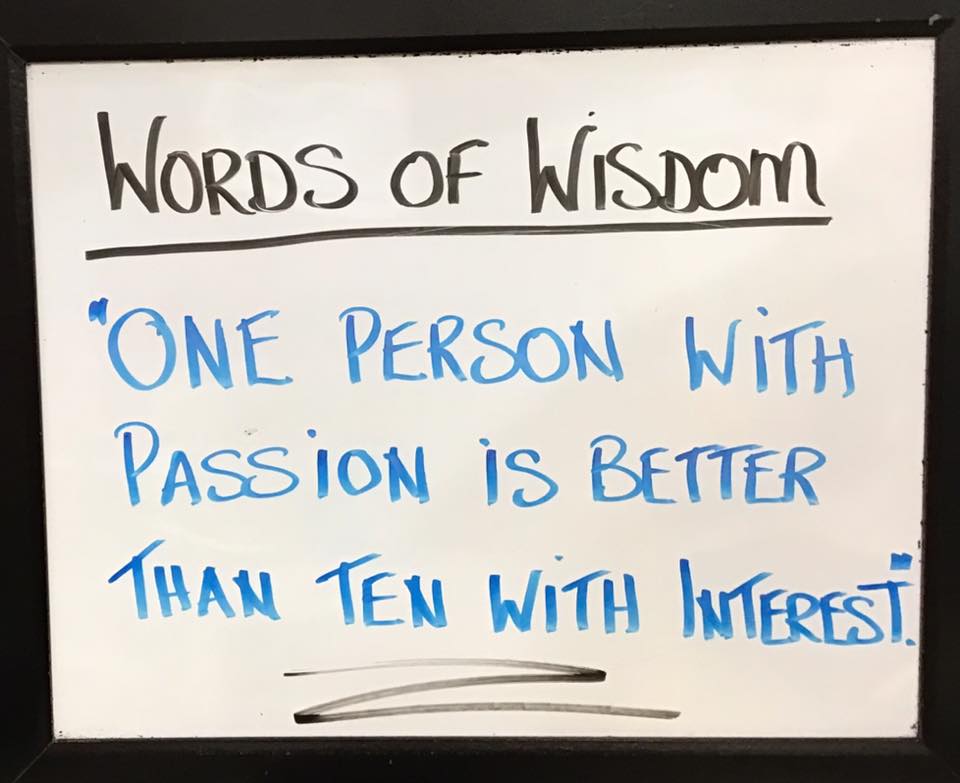 WORDS OF WISDOM
"ONE PERSON WITH
PASSION IS BETTER
THAN TEN WITH INTEREST."